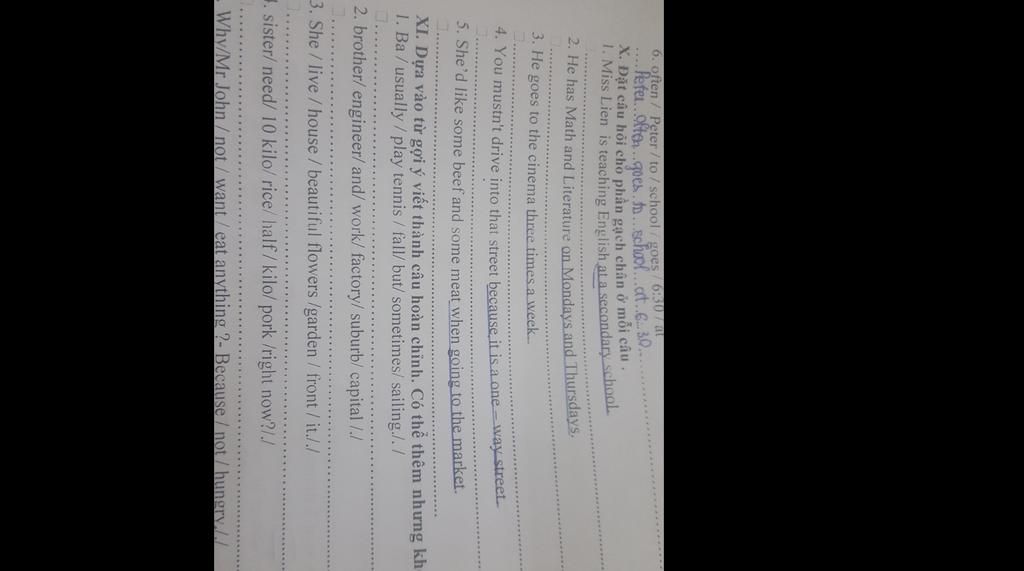 6. often / Peter / to / school / goes / 6:30 / at
Peter often goes to school at 6.30
X. Đặt câu hỏi cho phần gạch chân ở mỗi câu .
1. Miss Lien is teaching English at a secondary school.
2. He has Math and Literature on Mondays and Thursdays.
3. He goes to the cinema three times a week.
4. You mustn't drive into that street because it is a one – way street.
5. She'd like some beef and some meat when going to the market.
XI. Dựa vào từ gợi ý viết thành câu hoàn chỉnh. Có thể thêm nhưng kh
1. Ba / usually / play tennis / fall/ but/ sometimes/ sailing./. /
2. brother/ engineer/ and/ work/ factory/ suburb/ capital /./
3. She / live / house / beautiful flowers /garden / front / it./.
4. sister/ need/ 10 kilo/ rice/ half / kilo/ pork /right now?/./
Why/Mr John / not / want / eat anything ?- Because / not / hungry././